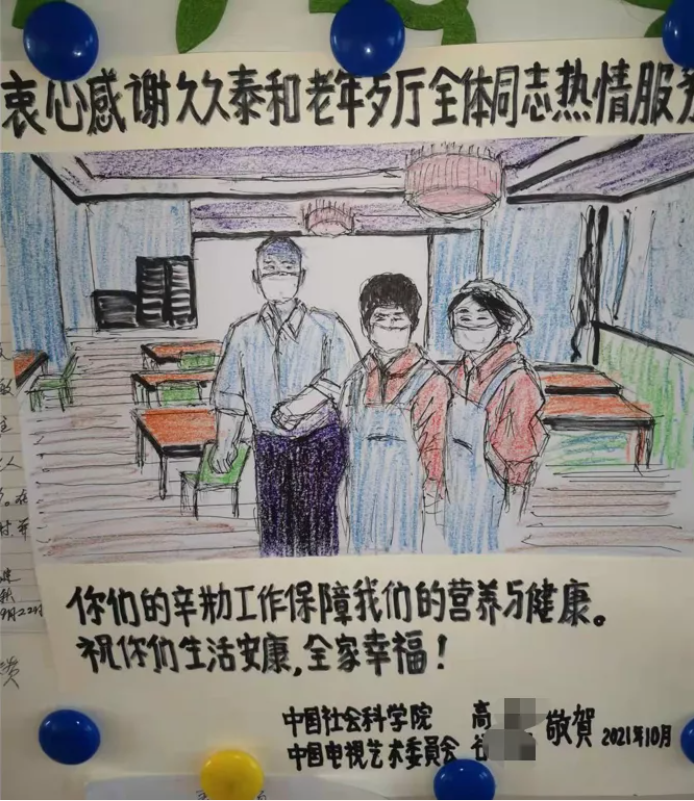 衷心感谢久久泰和老年歺厅全体同志热情服务
你们的辛勤工作保障我们的营养与健康。
祝你们生活安康,全家幸福!
中国社会科学院 高
中国电视艺术委员会 谷
敬賀 2021年10月